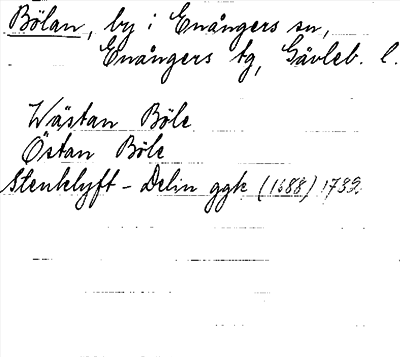 Bölan, by i Enångers sn,
Enångers tg, Gävleb. l.
Wästan Böle
Östan Böle
Stenklyft-Delin ggk (1688) 1782